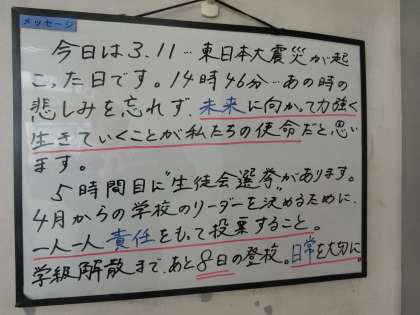 メッセージ
今日は3.11…東日本大震災が起
こった日です。14時46分…あの時の
悲しみを忘れず、未来に向かって力強く
生きていくことが私たちの使命だと思い
ます。
5時間目に"生徒会選挙"があります。
4月からの学校のリーダーを決めるために、
一人一人責任をもって投票すること。
学級解散まで、あと8日の登校。日常を大切に。